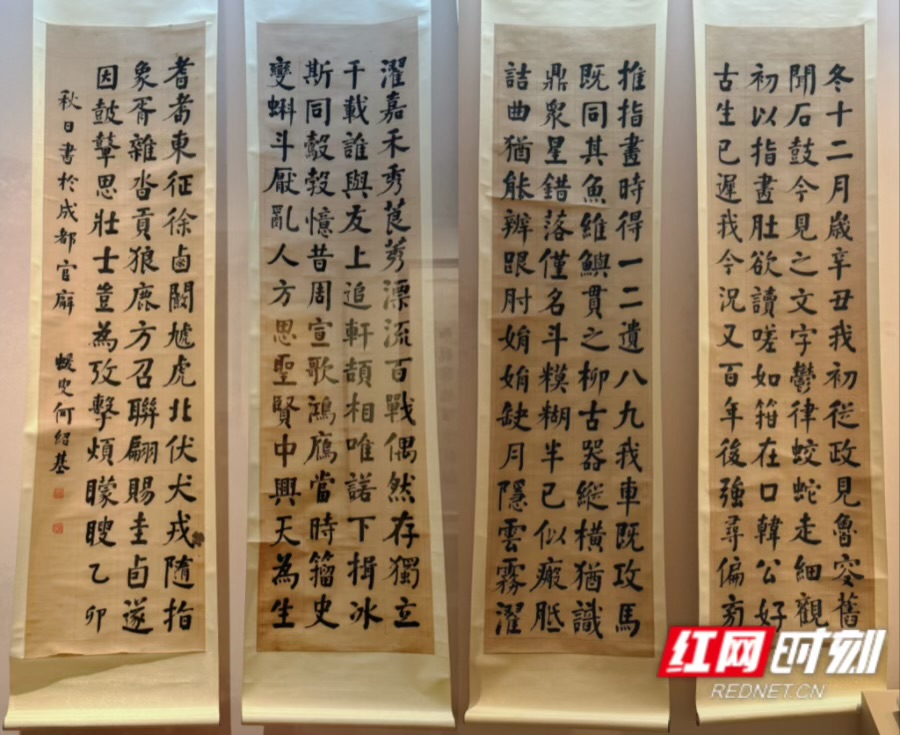 冬十二月歲辛丑我初從政見魯叟舊
聞石鼓今見之文字鬱律蛟蛇走細觀
初以指畫肚欲讀嗟如箝在口韓公好
古生已遲我今況又百年後強尋偏旁
推指畫時得一二遺八九我車既攻馬
既同其魚維鱮貫之柳古器縱橫猶識
鼎眾星錯落僅名斗糢糊半已似瘢胝
詰曲猶能辨跟肘娟娟缺月隱雲霧濯
濯嘉禾秀莨莠漂流百戰偶然存獨立
千載誰與友上追軒頡相唯諾下揖冰
斯同鷇㝅憶昔周宣歌鴻鴈當時籀史
變蝌斗厭亂人方思聖賢中興天為生
耆耇東征徐鹵闞虓虎北伏犬戎隨指
象胥雜沓貢狼鹿方召聯翩賜圭卣遂
因鼓鼙思壯士豈為攷擊煩矇瞍乙卯
秋日書於成都官廨 蝯叟何紹基
红网时刻
REDNET.CN